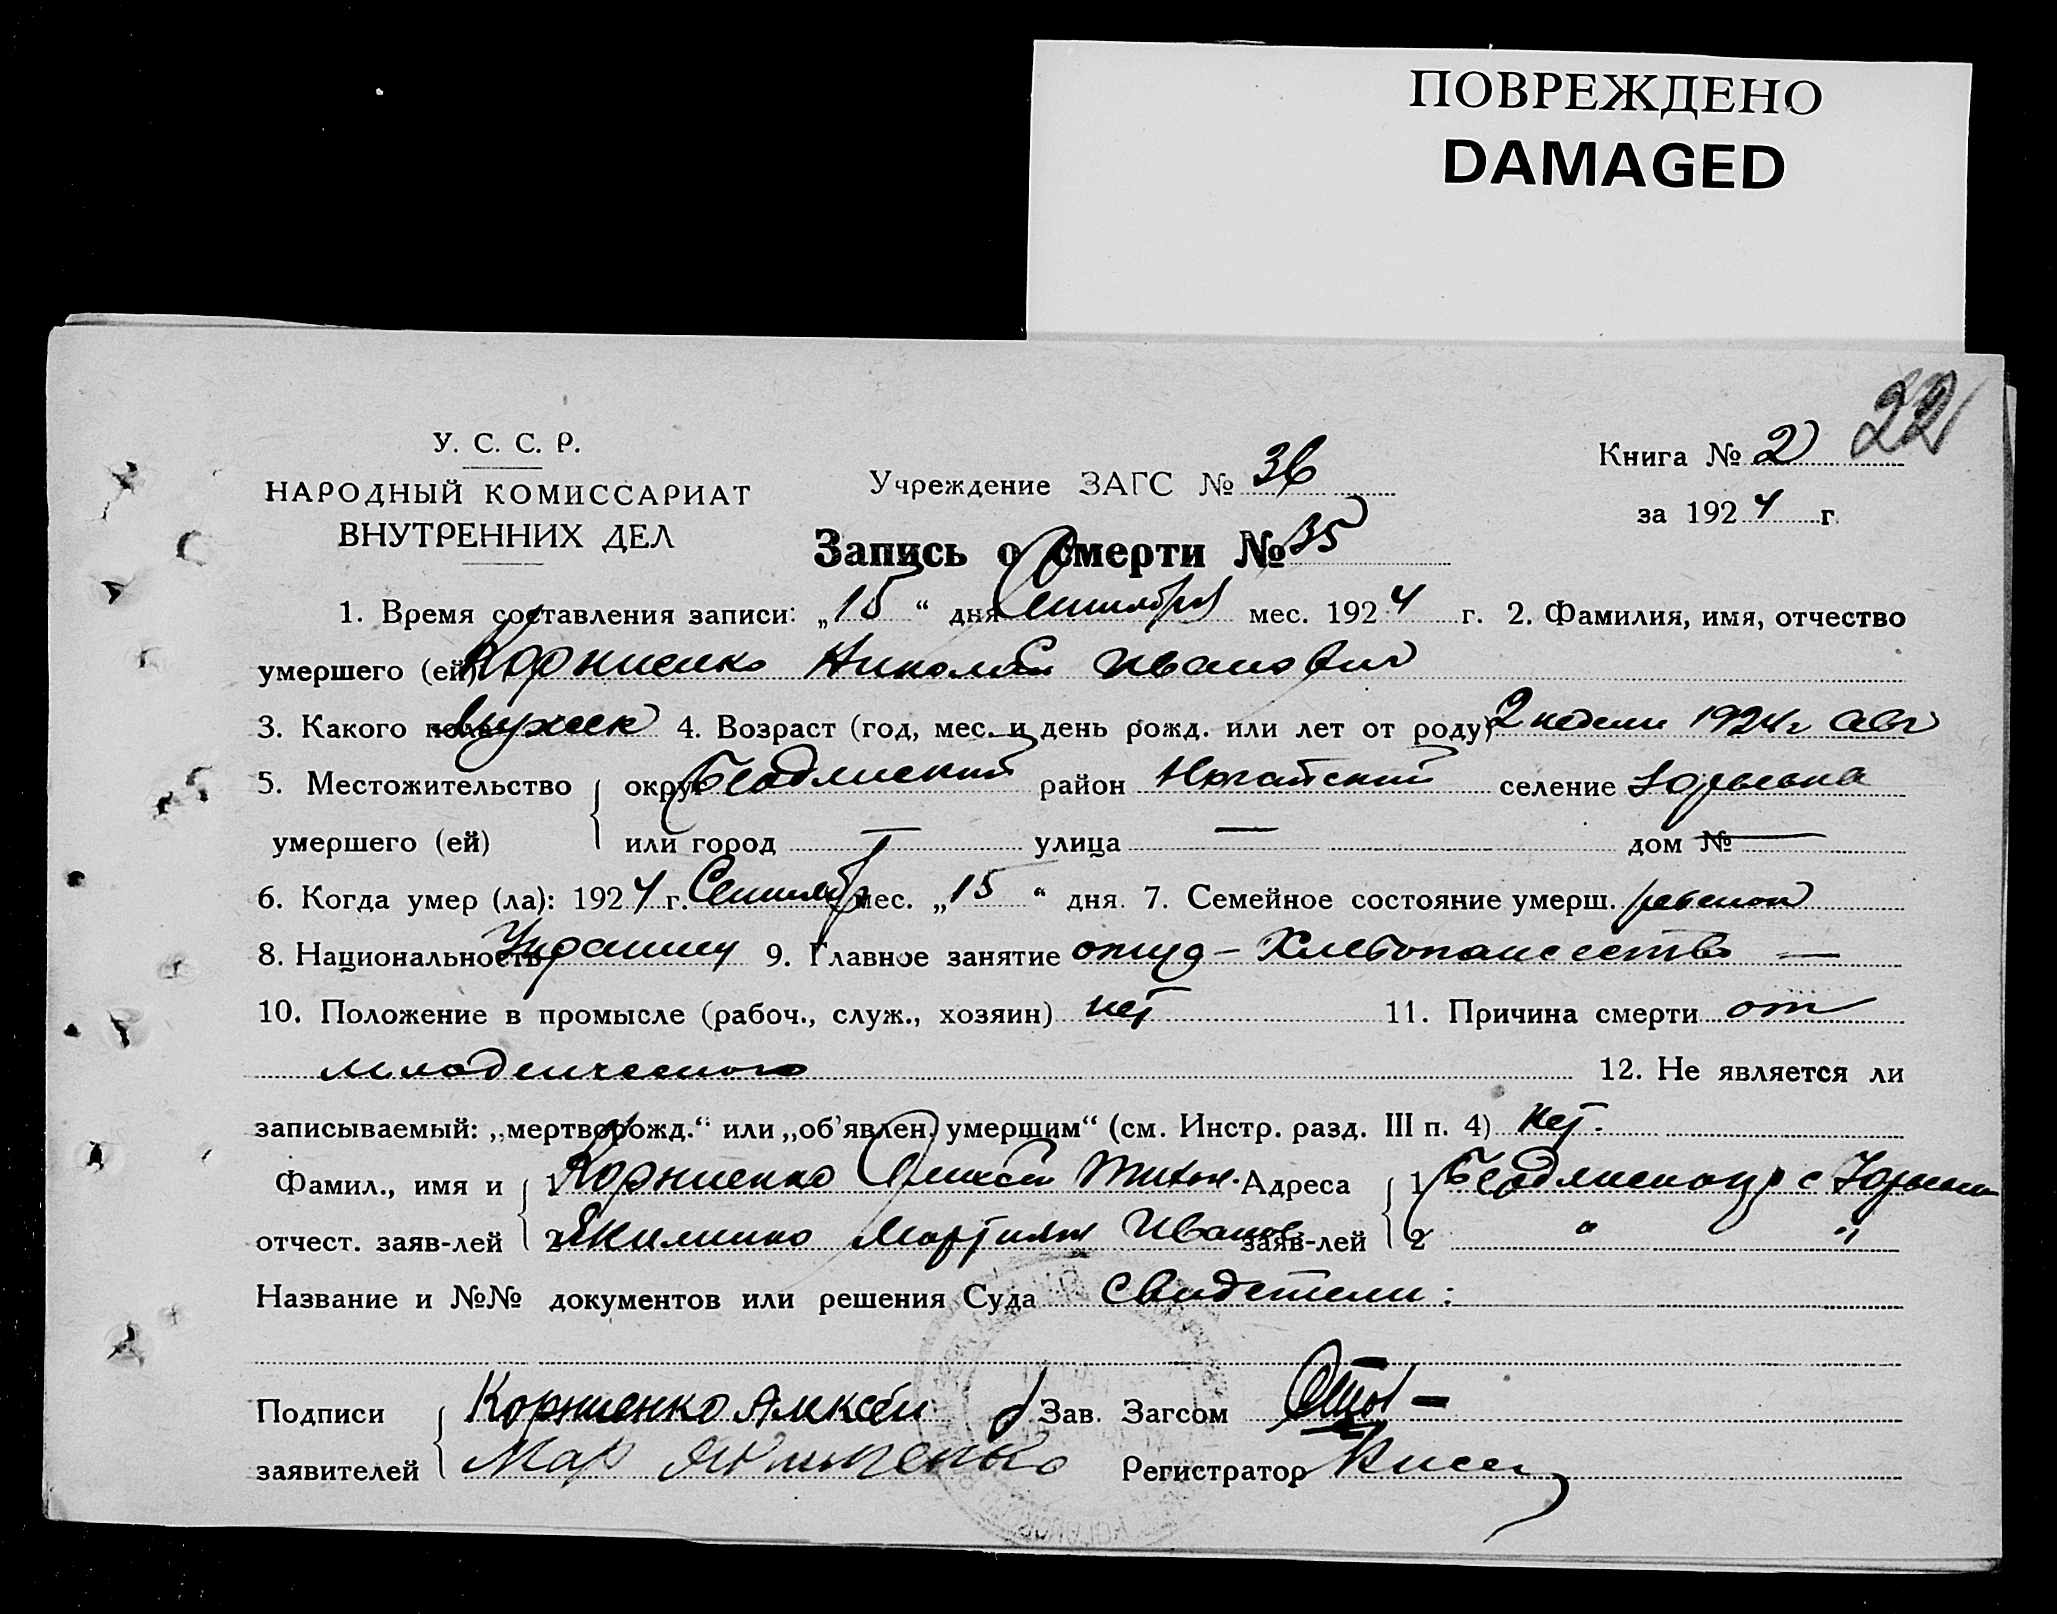 ПОВРЕЖДЕНО
DAMAGED
22
У. С. С. Р.
НАРОДНЫЙ КОМИССАРИАТ
ВНУТРЕННИХ ДЕЛ
Учреждение ЗАГС № 36
Книга № 2
за 1924 г.
Запись о смерти № 35
1. Время составления записи: „15“ дня Сентября мес. 1924 г. 2. Фамилия, имя, отчество
умершего (ей) Корниенко Николай Иванович
3. Какого пола мужск 4. Возраст (год, мес. и день рожд. или лет от роду) 2 недели 1924 г Авг
5. Местожительство округ Бердянский район Ногайский селение
умершего (ей) или город — улица — дом № —
6. Когда умер (ла): 1924 г. Сентябр мес. „15“ дня. 7. Семейное состояние умерш. ребенок
8. Национальность Украинец 9. Главное занятие Хлебопашество —
10. Положение в промысле (рабоч., служ., хозяин) нет 11. Причина смерти от
младенческого 12. Не является ли
записываемый: „мертворожд.“ или „об’явлен. умершим“ (см. Инстр. разд. III п. 4) Нет.
Фамил., имя и 1 Корниенко Алексей Адреса 1 с
отчест. заяв-лей 2 Иванов заяв-лей 2 " "
Название и №№ документов или решения Суда Свидетели:
Подписи Корниенко Алексей Зав. Загсом
заявителей Мар Якименко Регистратор